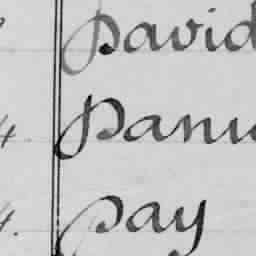 David
4. Danu
4. Day